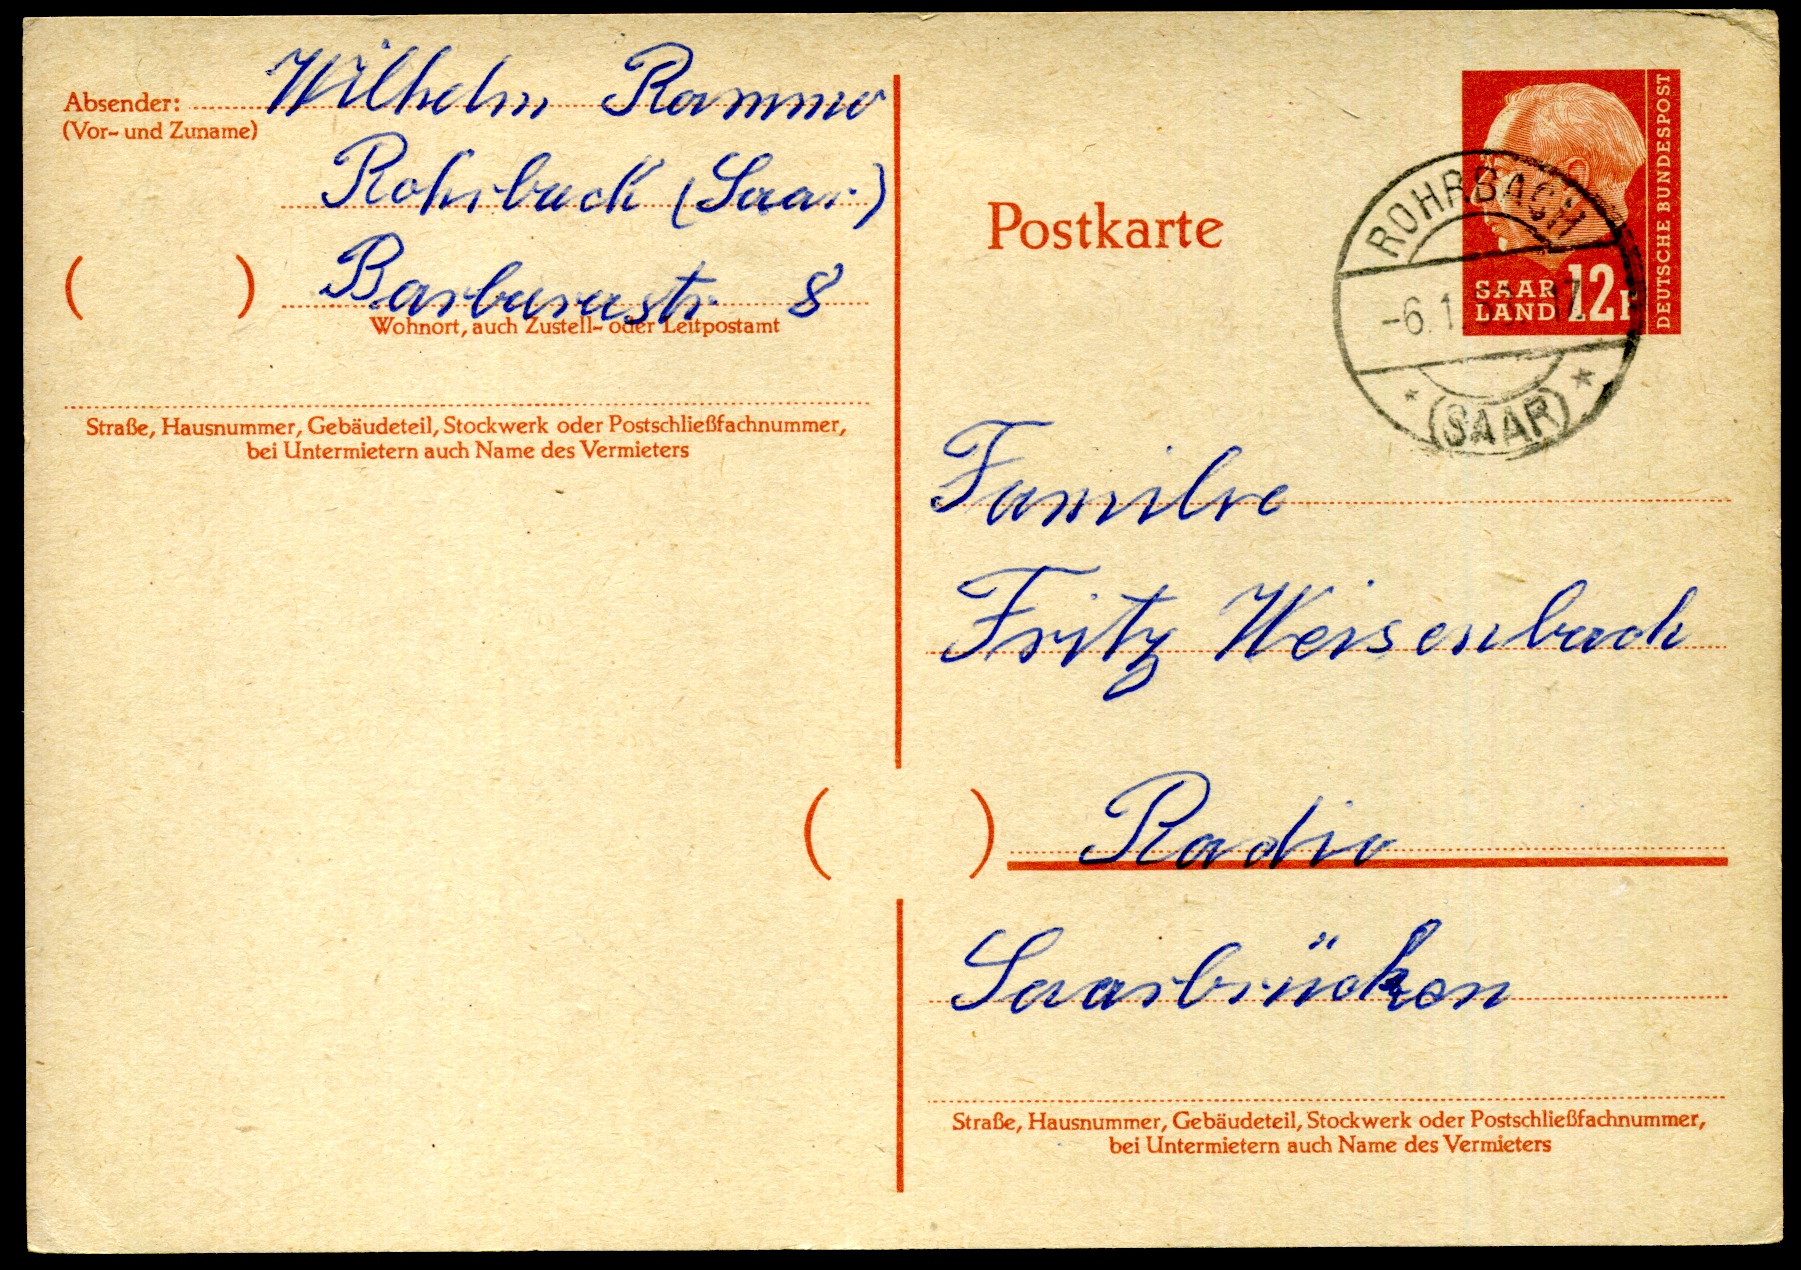 Absender: Wilhelm Rammo
(Vor- und Zuname)
Rohrbach (Saar)
( ) Barbarastr. 8
Wohnort, auch Zustell- oder Leitpostamt
Straße, Hausnummer, Gebäudeteil, Stockwerk oder Postschließfachnummer,
bei Untermietern auch Name des Vermieters
Postkarte
DEUTSCHE BUNDESPOST
SAAR
LAND 12F
ROHRBACH
-6.1. 17
* (SAAR) *
Familie
Fritz Weisenbach
( ) Radio
Saarbrücken
Straße, Hausnummer, Gebäudeteil, Stockwerk oder Postschließfachnummer,
bei Untermietern auch Name des Vermieters